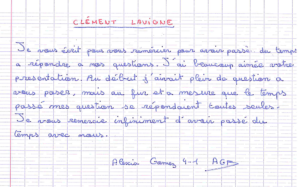 CLÉMENT LAVIGNE
Je vous écrit pour vous remercier pour avoir passé du temps
a répondre a nos questions. J'ai beaucoup aimée votre
presentation. Au début j'avait plein de question a
vous poser, mais au fur et a mesure que le temps
passé mes question se répondaient toutes seules.
Je vous remercie infiniment d'avoir passé du
temps avec nous.
Gomez 4-1